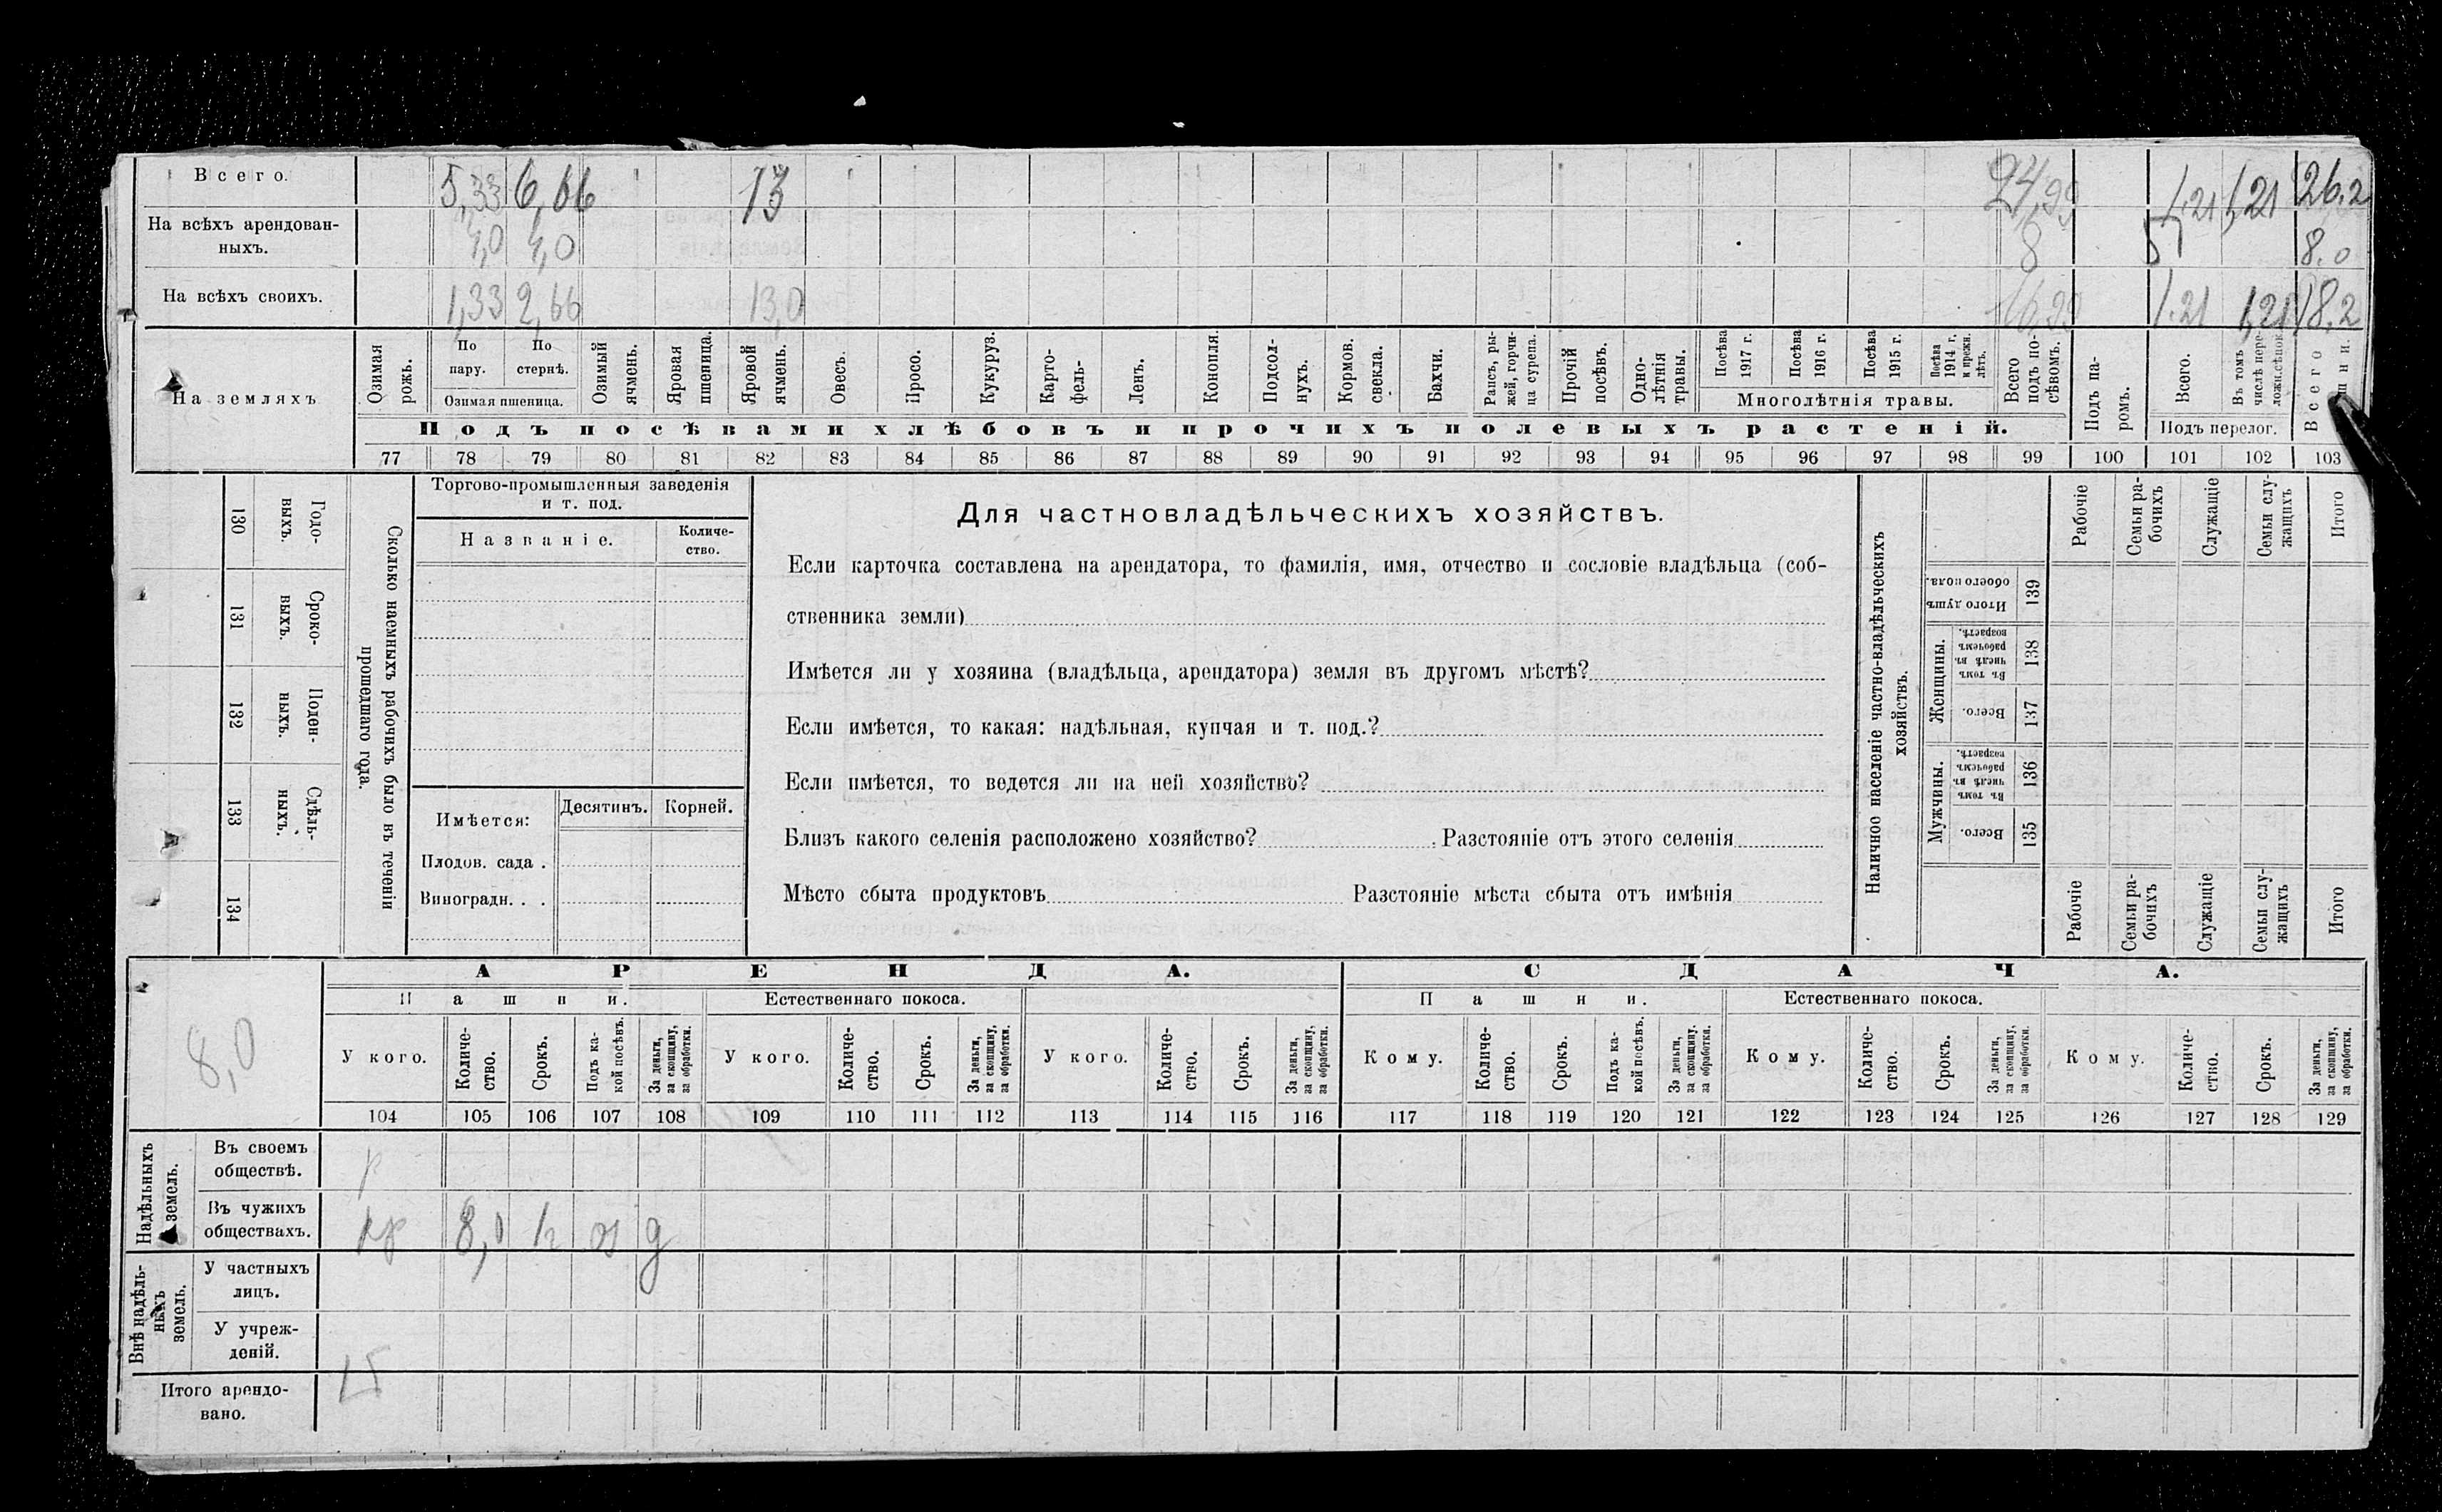 Всего. 5,33 6,66 13 24,99 1,21 1,21 26.2
На всѣхъ арендован-
ныхъ. 4,0 4,0 8 8.0
На всѣхъ своихъ. 1,33 2,66 13,0 16,99 1.21 1,21 18,2
На земляхъ
Озимая рожь.
По пару.
По стернѣ.
Озимая пшеница.
Озимый ячмень.
Яровая пшеница.
Яровой ячмень.
Овесъ.
Просо.
Кукуруз.
Карто-
фель-
Ленъ.
Конопля.
Подсол-
нухъ.
Кормов.
свекла.
Бахчи.
Рапсъ, ры-
жей, горчи-
ца сурепа.
Прочій
посѣвъ.
Одно-
лѣтнія
травы.
Посѣва
1917 г.
Посѣва
1916 г.
Посѣва
1915 г.
Посѣва
1914 г.
и прежн.
лѣтъ.
Многолѣтнія травы.
Всего
подъ по-
сѣвомъ.
Подъ па-
ромъ.
Всего.
Въ томъ
числѣ пере-
ложн.сѣнок.
Подъ перелог.
Всего
Подъ посѣвами хлѣбовъ и прочихъ полевыхъ растеній.
77 78 79 80 81 82 83 84 85 86 87 88 89 90 91 92 93 94 95 96 97 98 99 100 101 102 103
Сколько наемныхъ рабочихъ было въ теченіи
прошедшаго года.
Годо-
выхъ.
130
Сроко-
выхъ.
131
Поден-
ныхъ.
132
Сдѣль-
ныхъ.
133
134
Торгово-промышленныя заведенія
и т. под.
Названіе.
Количе-
ство.
Имѣется:
Десятинъ. Корней.
Плодов. сада .
Виноградн. . .
Для частновладѣльческихъ хозяйствъ.
Если карточка составлена на арендатора, то фамилія, имя, отчество и сословіе владѣльца (соб-
ственника земли)
Имѣется ли у хозяина (владѣльца, арендатора) земля въ другомъ мѣстѣ?
Если имѣется, то какая: надѣльная, купчая и т. под.?
Если имѣется, то ведется ли на ней хозяйство?
Близъ какого селенія расположено хозяйство? Разстояніе отъ этого селенія
Мѣсто сбыта продуктовъ Разстояніе мѣста сбыта отъ имѣнія
Наличное населеніе частно-владѣльческихъ
хозяйствъ.
Рабочіе
Семьи ра-
бочихъ
Служащіе
Семьи слу-
жащихъ
Итого
Итого душъ
обоего пола.
139
Женщины.
Въ томъ
числѣ въ
рабочемъ
возрастѣ.
138
Всего.
137
Мужчины.
Въ томъ
числѣ въ
рабочемъ
возрастѣ.
136
Всего.
135
Рабочіе
Семьи ра-
бочихъ
Служащіе
Семьи слу-
жащихъ
Итого
8,0
АРЕНДА. СДАЧА.
Пашни. Естественнаго покоса. Пашни. Естественнаго покоса.
У кого.
Количе-
ство.
Срокъ.
Подъ ка-
кой посѣвъ.
За деньги,
за скопщину,
за обработки.
У кого.
Количе-
ство.
Срокъ.
За деньги,
за скопщину,
за обработки.
У кого.
Количе-
ство.
Срокъ.
За деньги,
за скопщину,
за обработки.
Кому.
Количе-
ство.
Срокъ.
Подъ ка-
кой посѣвъ.
За деньги,
за скопщину.
за обработки.
Кому.
Количе-
ство.
Срокъ.
За деньги,
за скопщину,
за обработки.
Кому.
Количе-
ство.
Срокъ.
За деньги,
за скопщину,
за обработки.
104 105 106 107 108 109 110 111 112 113 114 115 116 117 118 119 120 121 122 123 124 125 126 127 128 129
Надѣльныхъ
земель.
Въ своемъ
обществѣ.
Въ чужихъ
обществахъ. 8,0 оз д
Внѣ надѣль-
ныхъ
земель.
У частныхъ
лицъ.
У учреж-
деній.
Итого арендо-
вано.